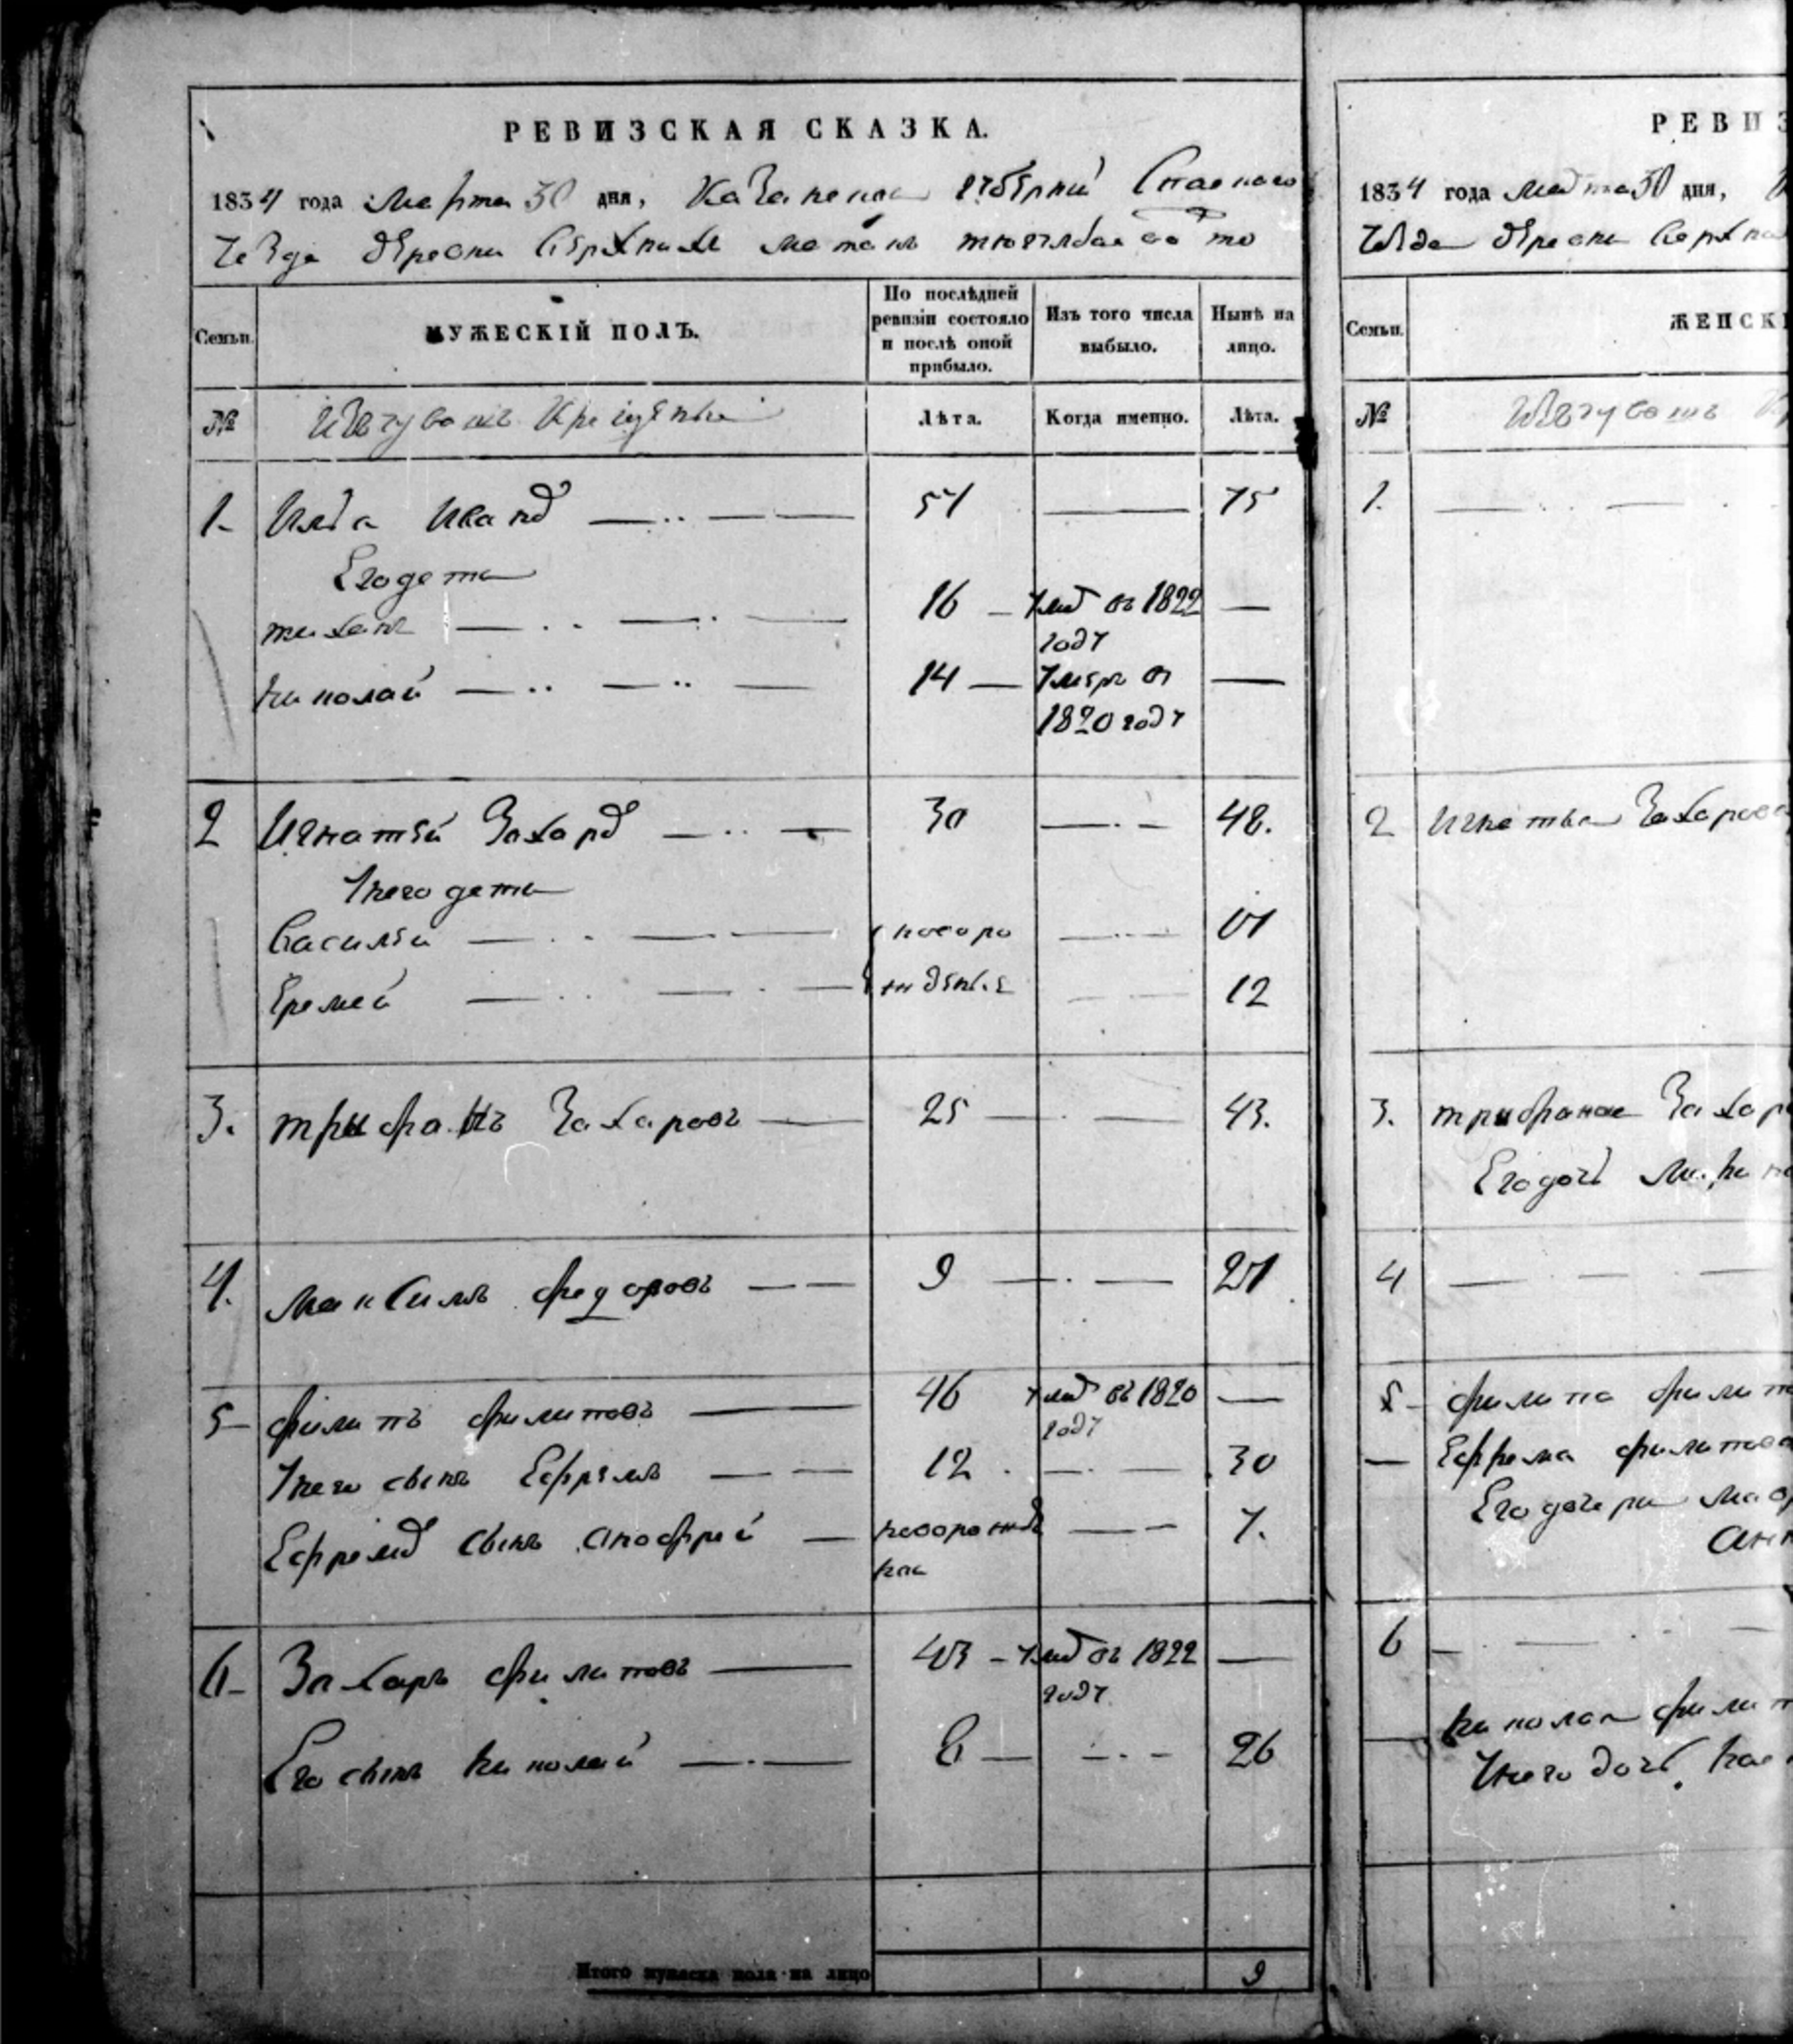 РЕВИЗСКАЯ СКАЗКА.
1834 года Марта 30 дня, Казанской губернии Спаскаго
уезда деревни Верхнихъ
Семьи.
МУЖЕСКІЙ ПОЛЪ.
По послѣдней ревизіи состояло и послѣ оной прибыло.
Изъ того числа выбыло.
Нынѣ на лицо.
№
Изчувашъ Крещены
Лѣта.
Когда именно.
Лѣта.
1. Илья Иванов 57 75
Его дети
тихонъ 16 Умер въ 1822
году
николай 14 Умеръ в
1820 году
2 Игнатей Захаров 30 48.
Унего дети
Василей новоро
Еремей жденые 12
3. трифанъ Захаровъ 25 43.
4. максимъ федоровъ 9 27
5 филипъ филиповъ 46 умер въ 1820
году
Унего сынъ Ефремъ 12 30
Ефремов сынъ анофрей новорожде 7.
6 Захаръ филиповъ умер въ 1822
году
Его сынъ николай 8 26
Итого мужеска пола на лицо 9
РЕВИЗ
1834 года Марта 30 дня,
уезда деревни Верхни
Семьи.
ЖЕНСКІ
№
Изчувашъ
1.
2 Игнатья Захарова
3. трифана Захар
Его дочь
4
5 филипа филип
Ефрема филипов
Его дочери
6
николая филип
Унего дочь